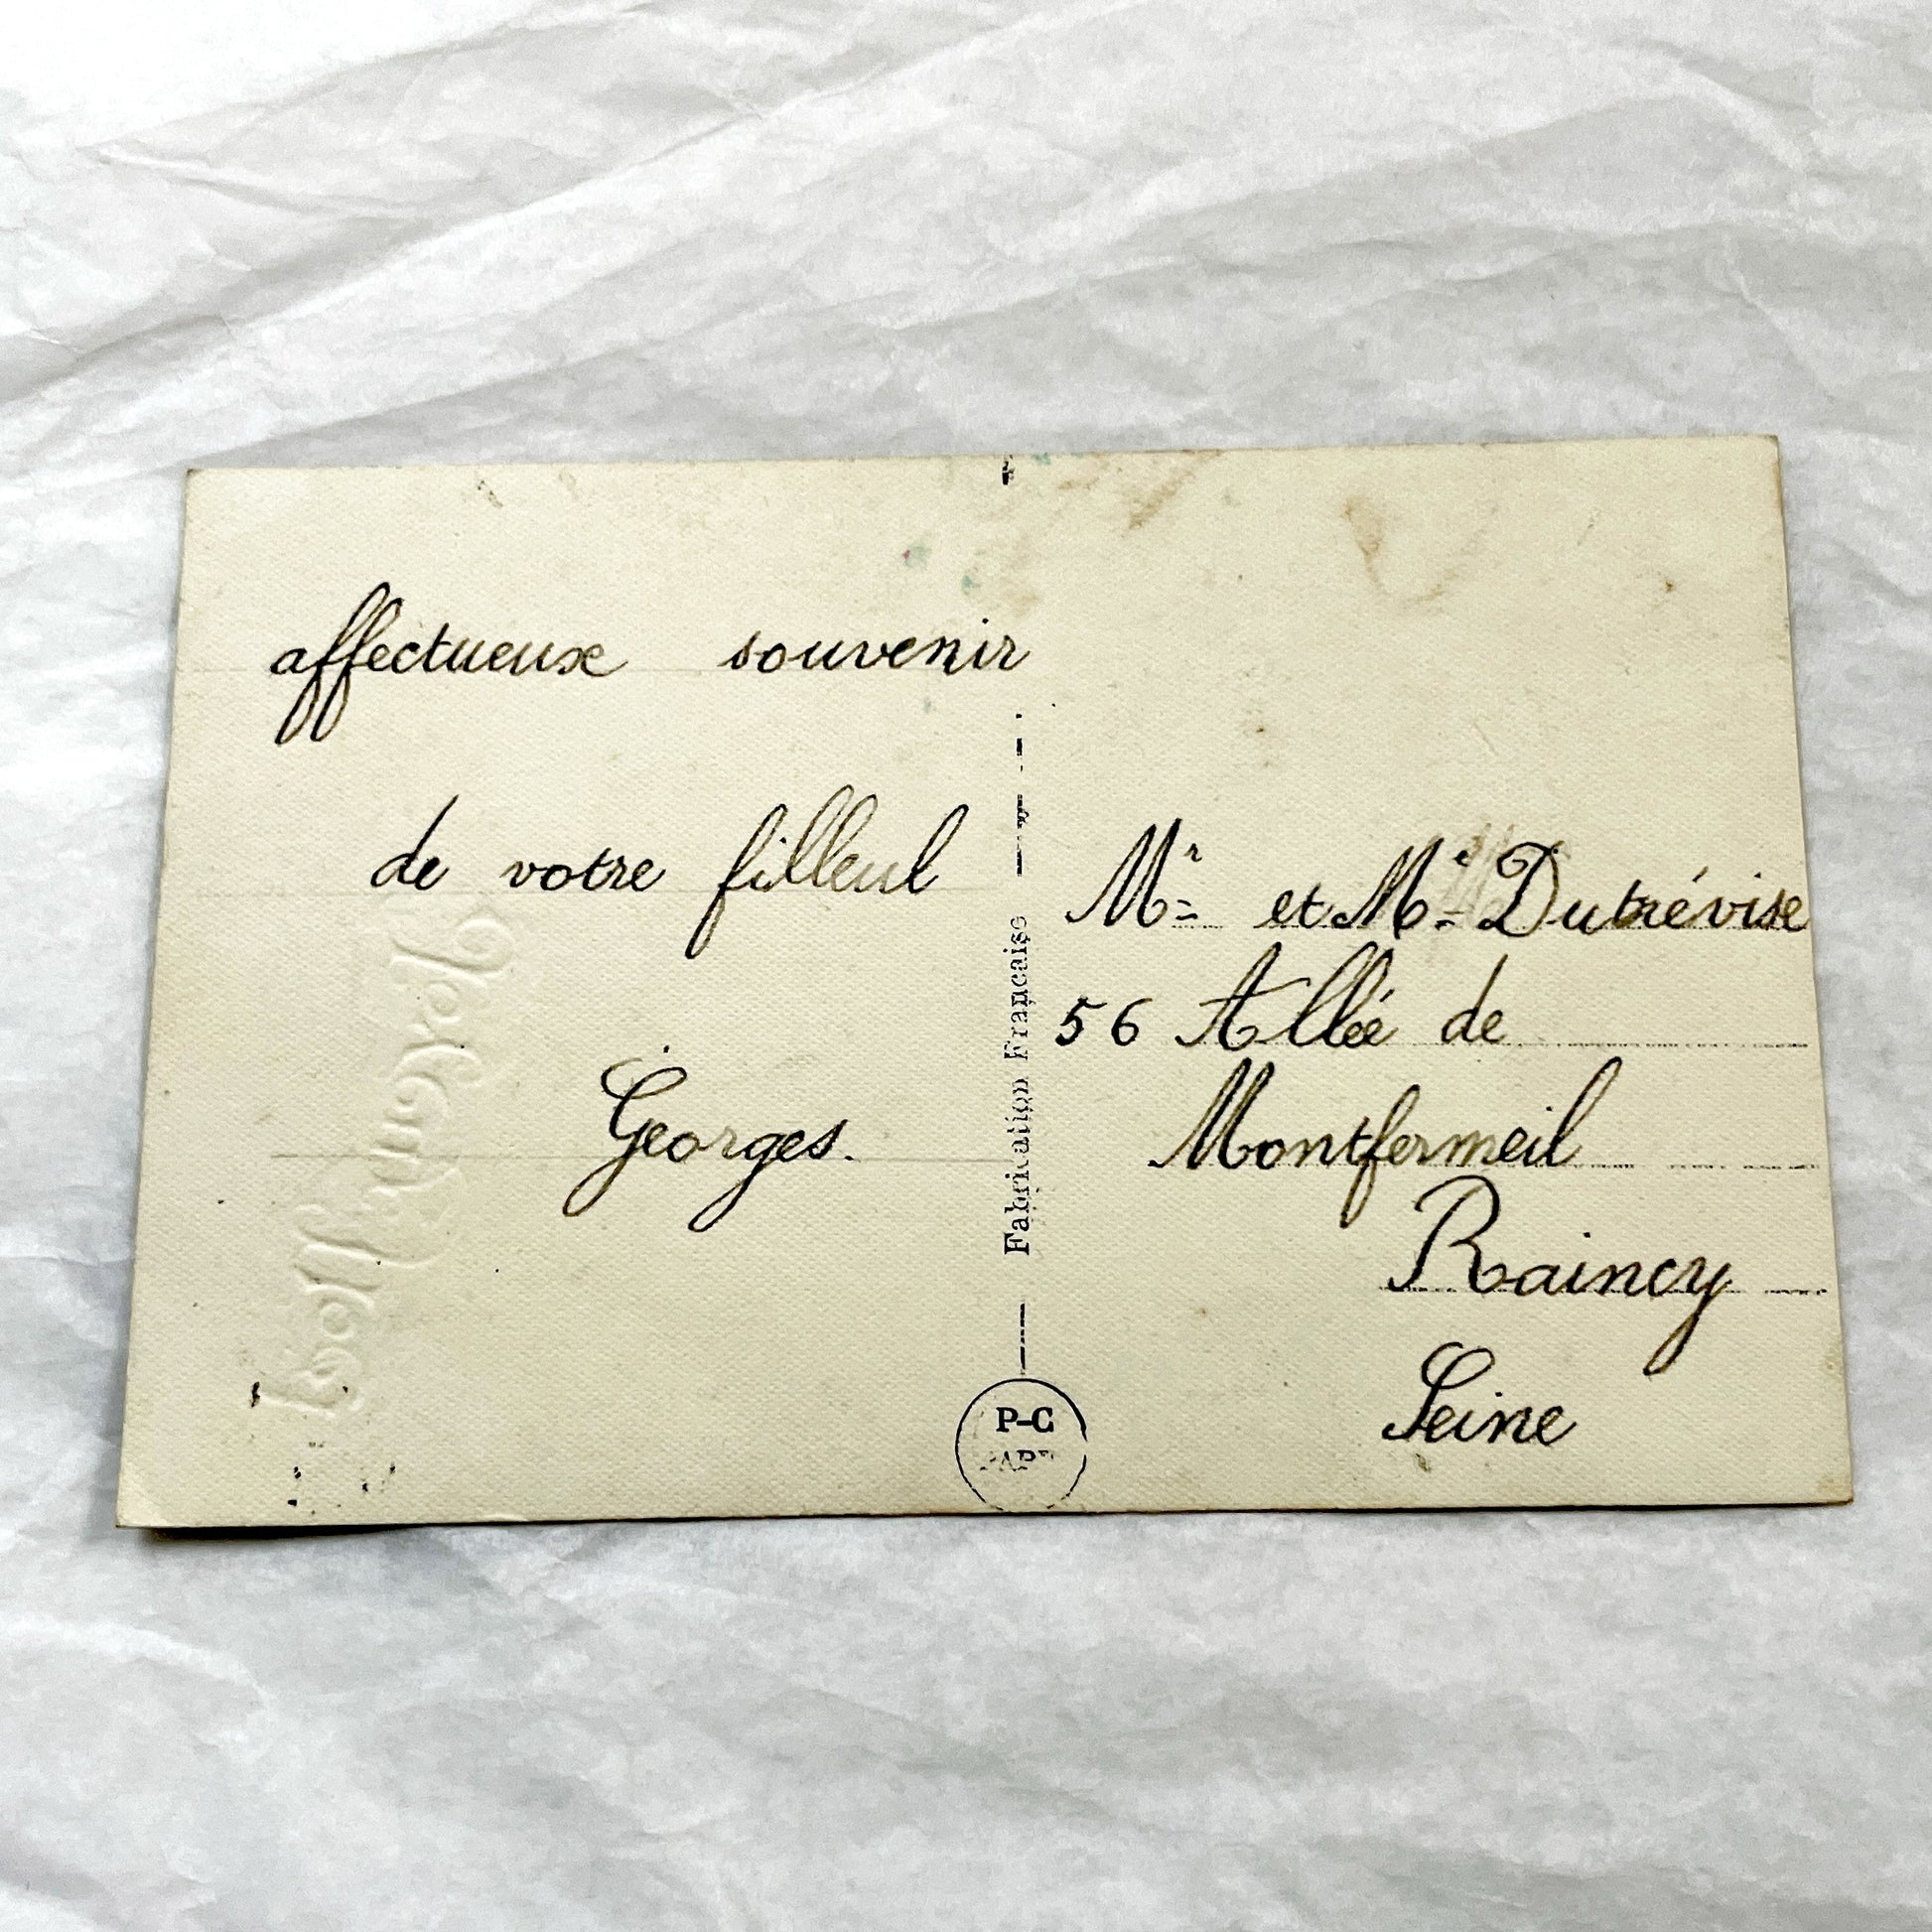 affectueux souvenir
de votre filleul
Georges.
Fabrication Française
P-C
Mr et Me Dutrévise
56 Allée de
Montfermeil
Raincy
Seine
Joyeux Noël